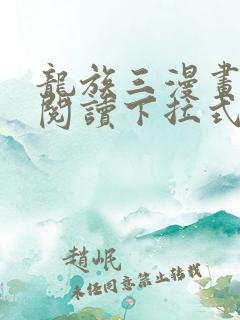 龍族三漫畫
閱讀下拉式
趙岷
未任同意禁止轉載